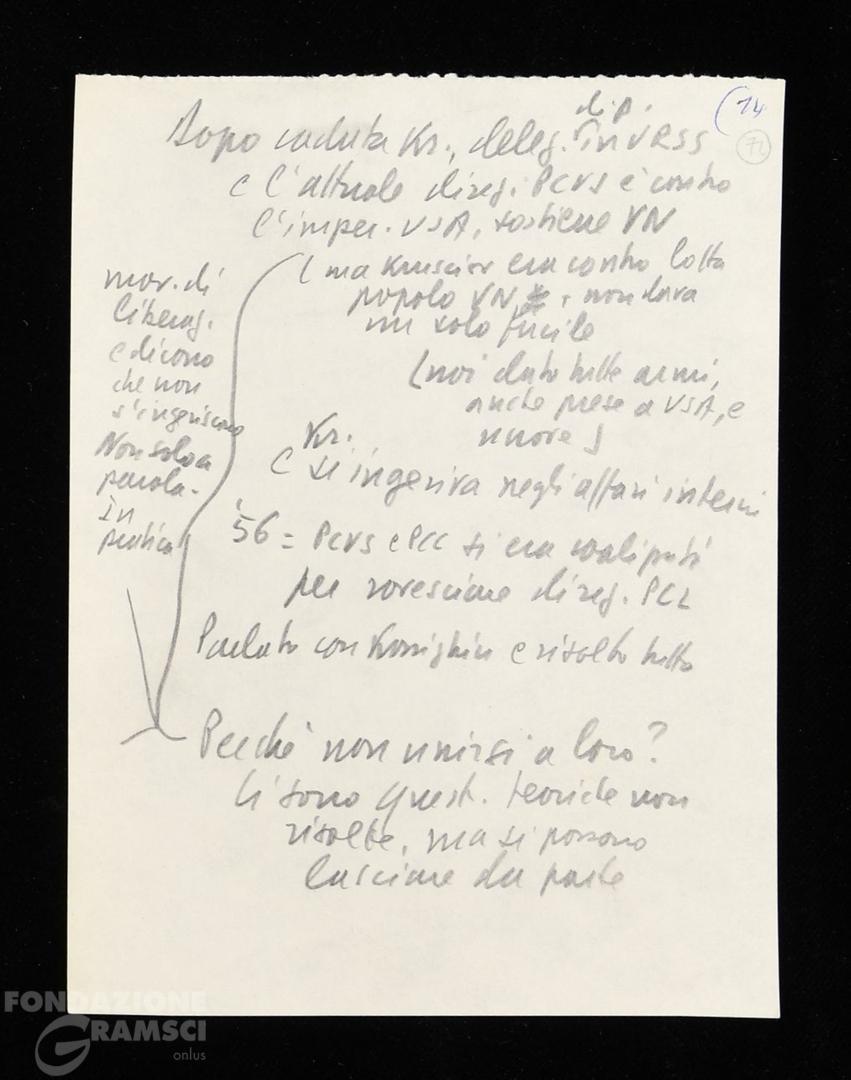 (14
71
di p.
Dopo caduta Kr., deleg. in URSS
e l'attuale direz. PCUS è contro
l'imper. USA, sostiene VN
(ma Krusciov era contro lotta
popolo VN e non dava
un solo fucile
(noi dato tutte armi,
anche prese a USA, e
nuove)
Kr.
e si ingeriva negli affari interni
'56 = PCUS e PCC si era coalizzati
per rovesciare direz. PCL
Parlato con Kossighin e risolto tutto
mov. di
liberaz.
e dicono
che non
s'ingeriscono
Non solo a
parola -
in
pratica
Perché non unirsi a loro?
Ci sono quest. teoriche non
risolte, ma si possono
lasciare da parte
FONDAZIONE
GRAMSCI
onlus